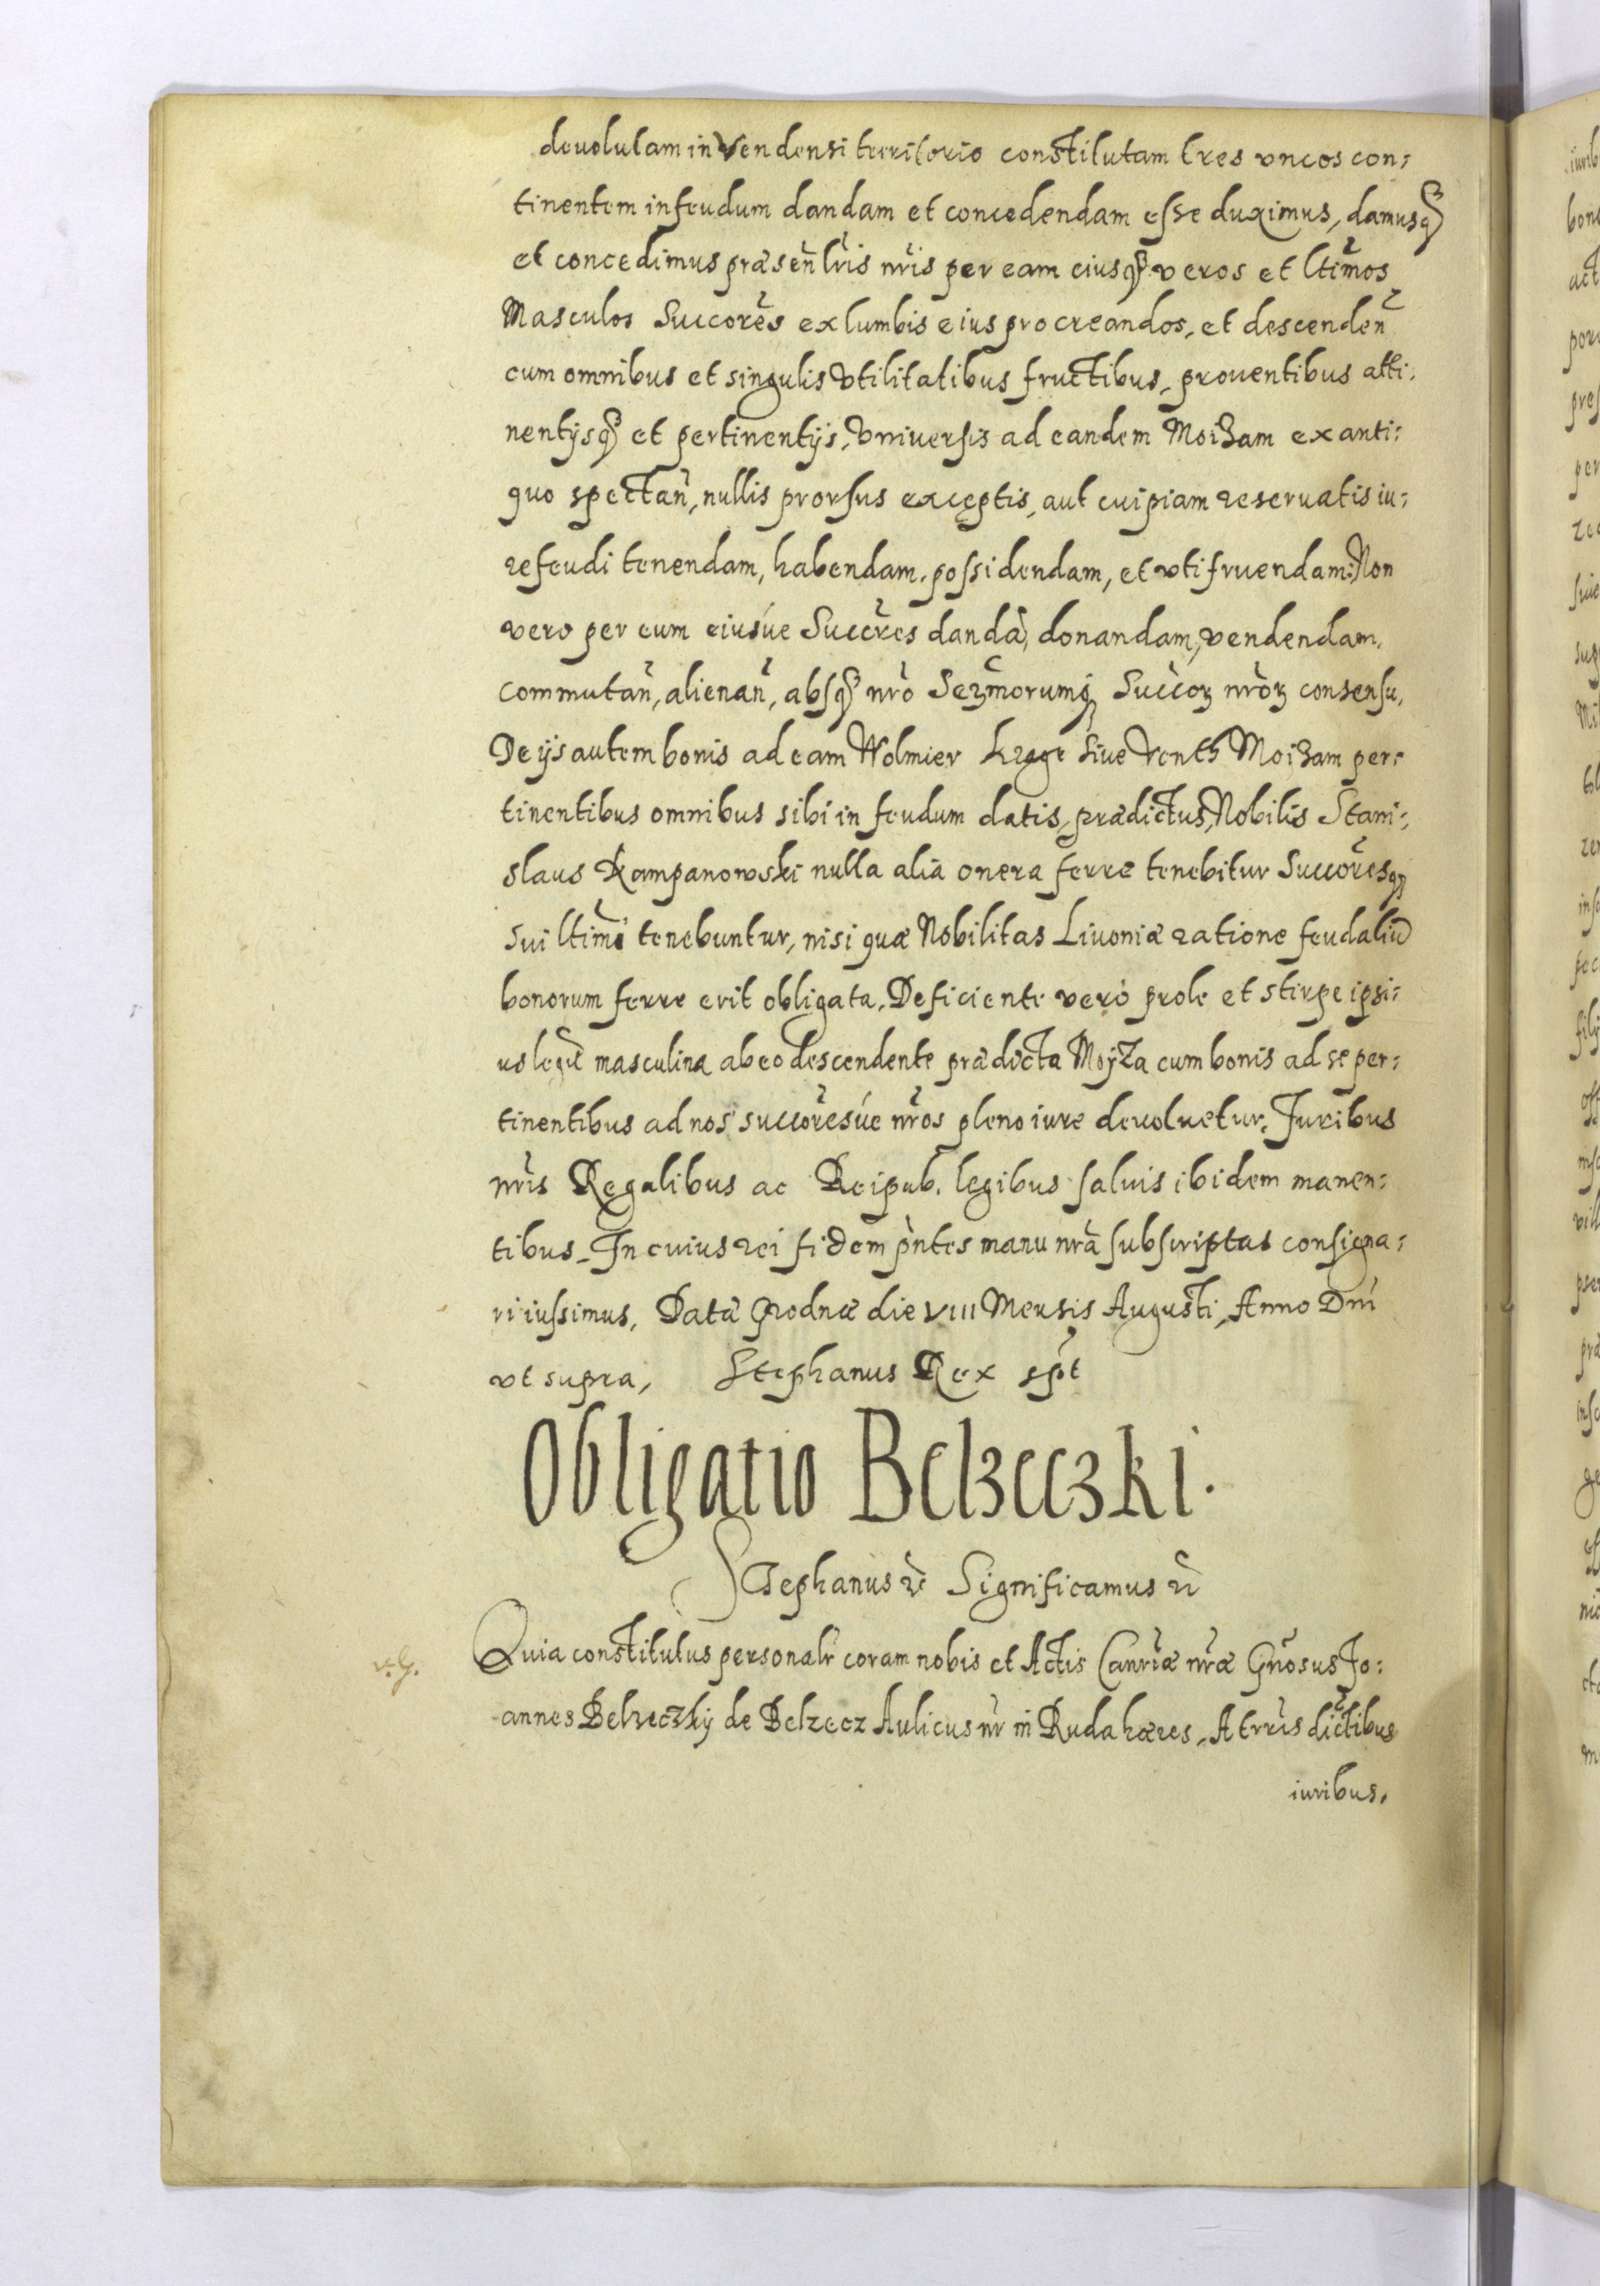 deuolutam in Vendensi territorio constitutam tres vncos con:
tinentem in feudum dandam et concedendam esse duximus, damusq3
et concedimus præsen̄ lr̄is nr̄is per eam eiusq3 veros et ltimos
Masculos Succores ex lumbis eius procreandos, et descenden̄
cum omnibus et singulis vtilitatibus fructibus, prouentibus atti:
nentijsq3 et pertinentijs, vniuersis ad eandem Moizam ex anti:
quo spectan̄, nullis prorsus exceptis, aut cuipiam reseruatis iu:
re feudi tenendam, habendam, possidendam, et vti fruendam: Non
vero per eum eiusúe Succr̄es dandā, donandam, vendendam,
commutan̄, alienan̄, absq3 nr̄o Serm̄orumq3 Succor nr̄or consensu,
De ijs autem bonis ad eam Wolmier Krege siue Venth Moizam per:
tinentibus omnibus sibi in feudum datis, prædictus, Nobilis Stani:
slaus Kampanowski nulla alia onera ferre tenebitur Succoresq3
sui ltimi tenebuntur, nisi quæ Nobilitas Liuoniæ ratione feudaliū
bonorum ferre erit obligata. Deficiente vero prole et stirpe ipsi:
us leg̃e masculina ab eo descendente prædicta Moÿza cum bonis ad se per:
tinentibus ad nos succoresúe nr̄os pleno iure deuoluetur, Juribus
nr̄is Regalibus ac Reipub. legibus saluis ibidem manen:
tibus. In cuius rei fidem pn̄tes manu nr̄a subscriptas consigna:
ri iussimus, Datæ Grodnæ die VIII Mensis Augusti, Anno Dni
vt supra, Stephanus Rex spt
Obligatio Belzeczki.
Stephanus rc Significamus rc
v. g.
Quia constitutus personalr coram nobis et Actis Canriæ nr̄æ Gn̄osus Jo:
annes Belzeczkÿ de Belzecz Aulicus nr in Ruda hæres, A trr̄is dictibus
iuribus.